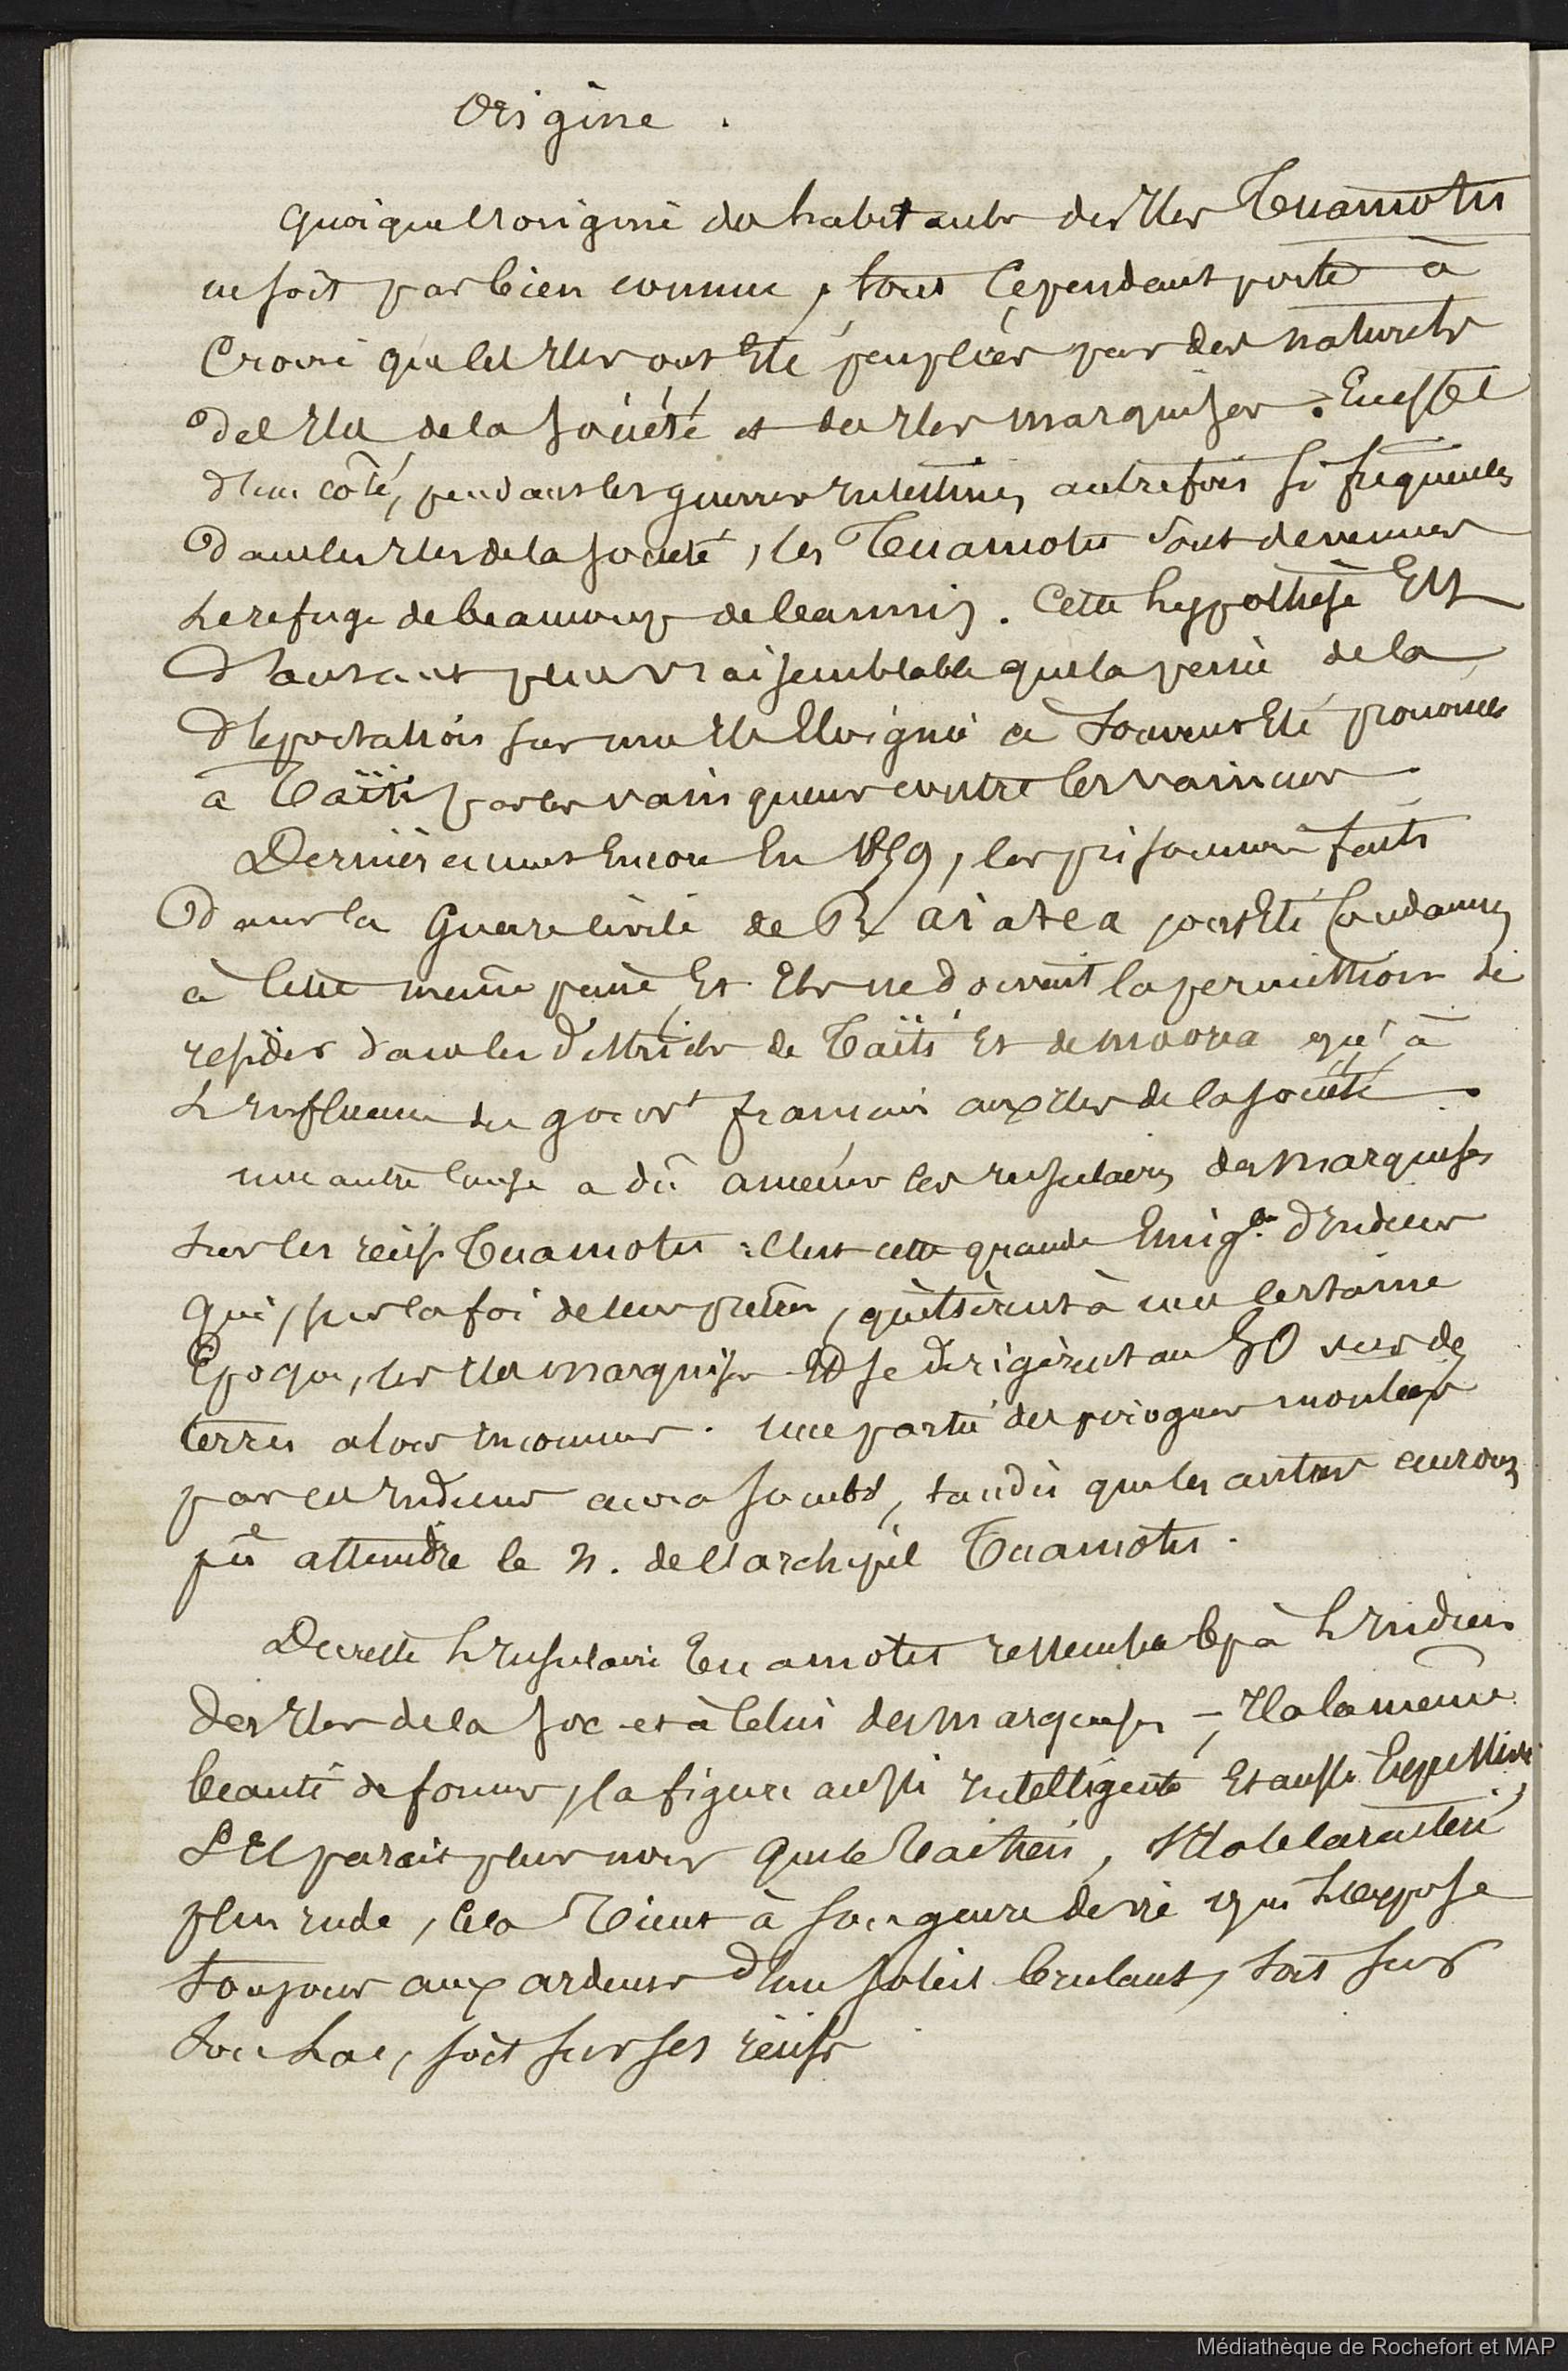 Origine .
Quoique l'origine des habitants des Iles Tuamotu
ne soit pas bien connue, tout cependant porte à
Croire que les Iles ont été peuplées par des naturels
des Iles de la Société et des Iles marquises. En effet
d'un côté, pendant les guerres intestines autrefois si fréquentes
dans les Iles de la société, les Tuamotu sont devenues
le refuge de beaucoup de bannis. Cette hypothèse Est
d'autant plus vraisemblable que la peine de la
déportation sur une Ile Eloignée a souvent Eté prononcée
à Taïti par les vainqueurs contre les vaincus
Dernièrement Encore En 1859, les prisonniers faits
dans la Guerre civile de Raiatea ont Eté Condamnés
à cette même peine Et Ils ne doivent la permission de
résider dans les districts de Taïti Et de moorea qu'à
L'Influence du gouvt francais aux Iles de la société.
une autre Cause a dû amener les insulaires des Marquises
sur les récifs Tuamotu : C'est cette grande Emigon d'Indiens
qui, sur la foi de leurs prêtres, quittèrent à une certaine
Epoque, les Iles marquises Et se dirigèrent au SO vers des
terres alors inconnues. une partie des pirogues montées
par ces Indiens aura succombé, tandis que les autres auront
pu atteindre le N. de l'archipel Tuamotu.
Du reste L'Insulaire Tuamotu ressemble à L'Indien
des Iles de la Soc et à Celui des marquises - Il a la même
beauté de formes, la figure aussi intelligente Et aussi Expressive,
S'Il parait plus noir que le Taïtien, S'Il a le caractère
plus rude, cela Tient à son genre de vie qui L'expose
toujours aux ardeurs d'un soleil brulant, soit sur
son Lac, soit sur ses récifs
Médiathèque de Rochefort et MAP